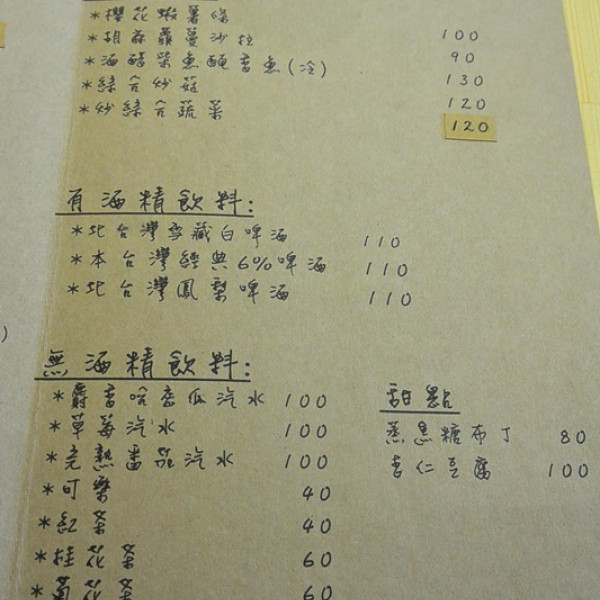 *櫻花嫩薯條
*胡麻蘿蔓沙拉 100
*海醋柴魚醃章魚(冷) 90
*綜合炒菇 130
*炒綜合蔬菜 120
120
有酒精飲料:
*北台灣雪藏白啤酒 110
*本台灣經典6%啤酒 110
*北台灣鳳梨啤酒 110
無酒精飲料:
*麝香哈密瓜汽水 100
*草莓汽水 100
*完熟番茄汽水 100
*可樂 40
*紅茶 40
60
60
甜點
蒸黑糖布丁 80
杏仁豆腐 100